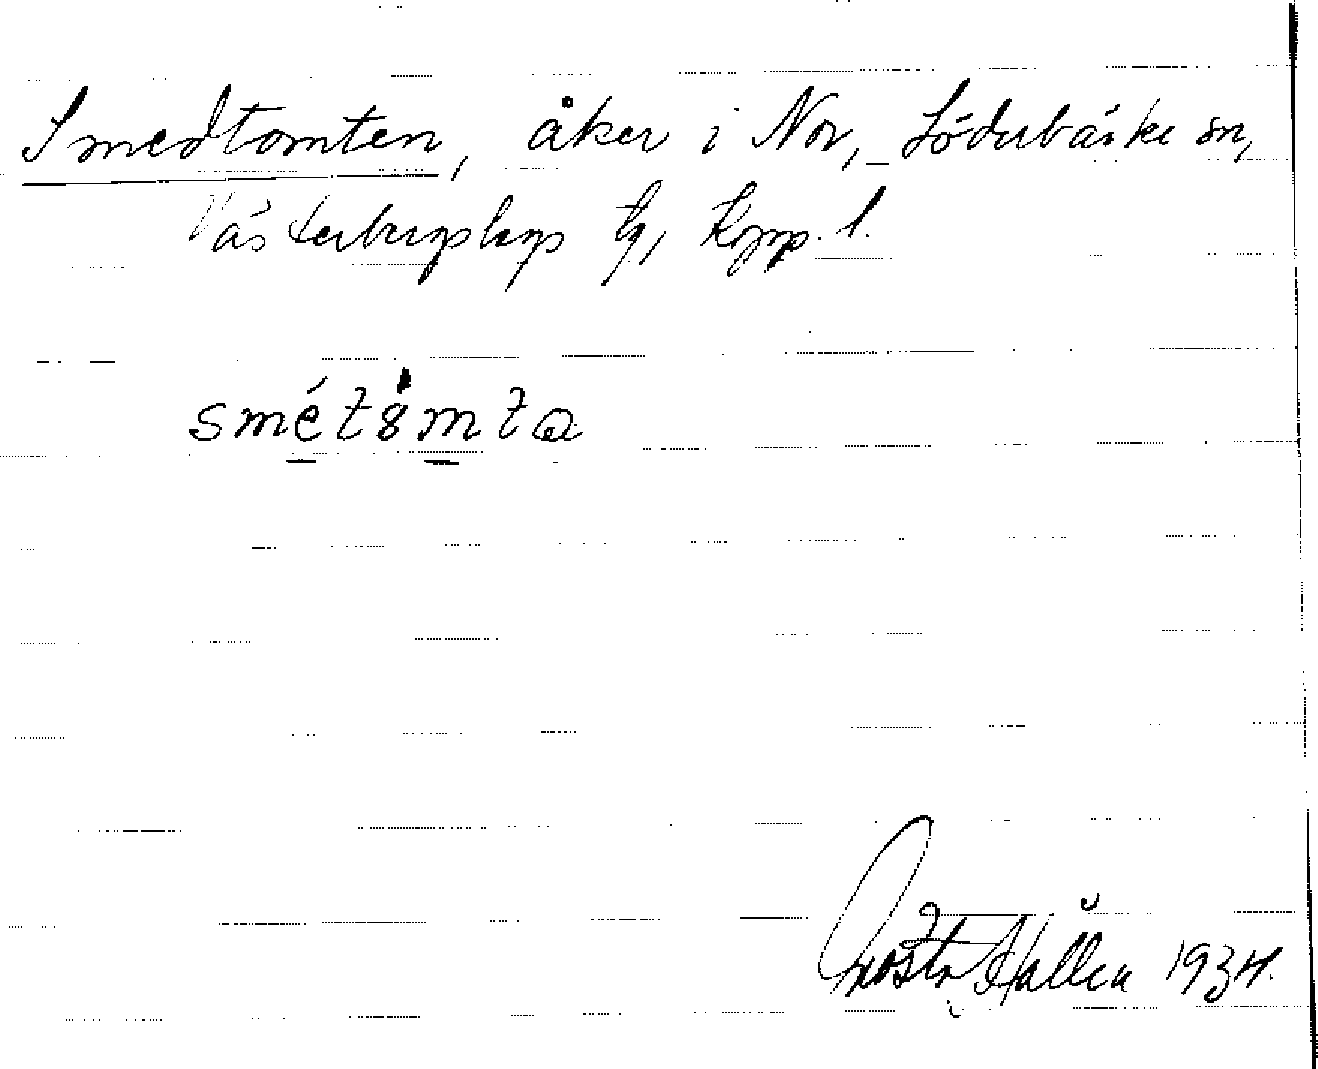 Smedtomten, åker i Nor, Söderbärke sn,
Västerbergslags tg, Kopp. l.
smétömta
Gösta Hallén 1934.